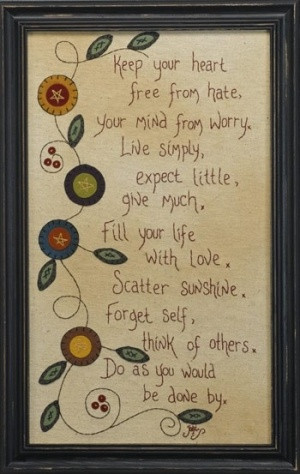 Keep your heart
free from hate,
your mind from worry.
Live simply,
expect little,
give much.
Fill your life
with love.
Scatter sunshine.
Forget self,
think of others.
Do as you would
be done by.